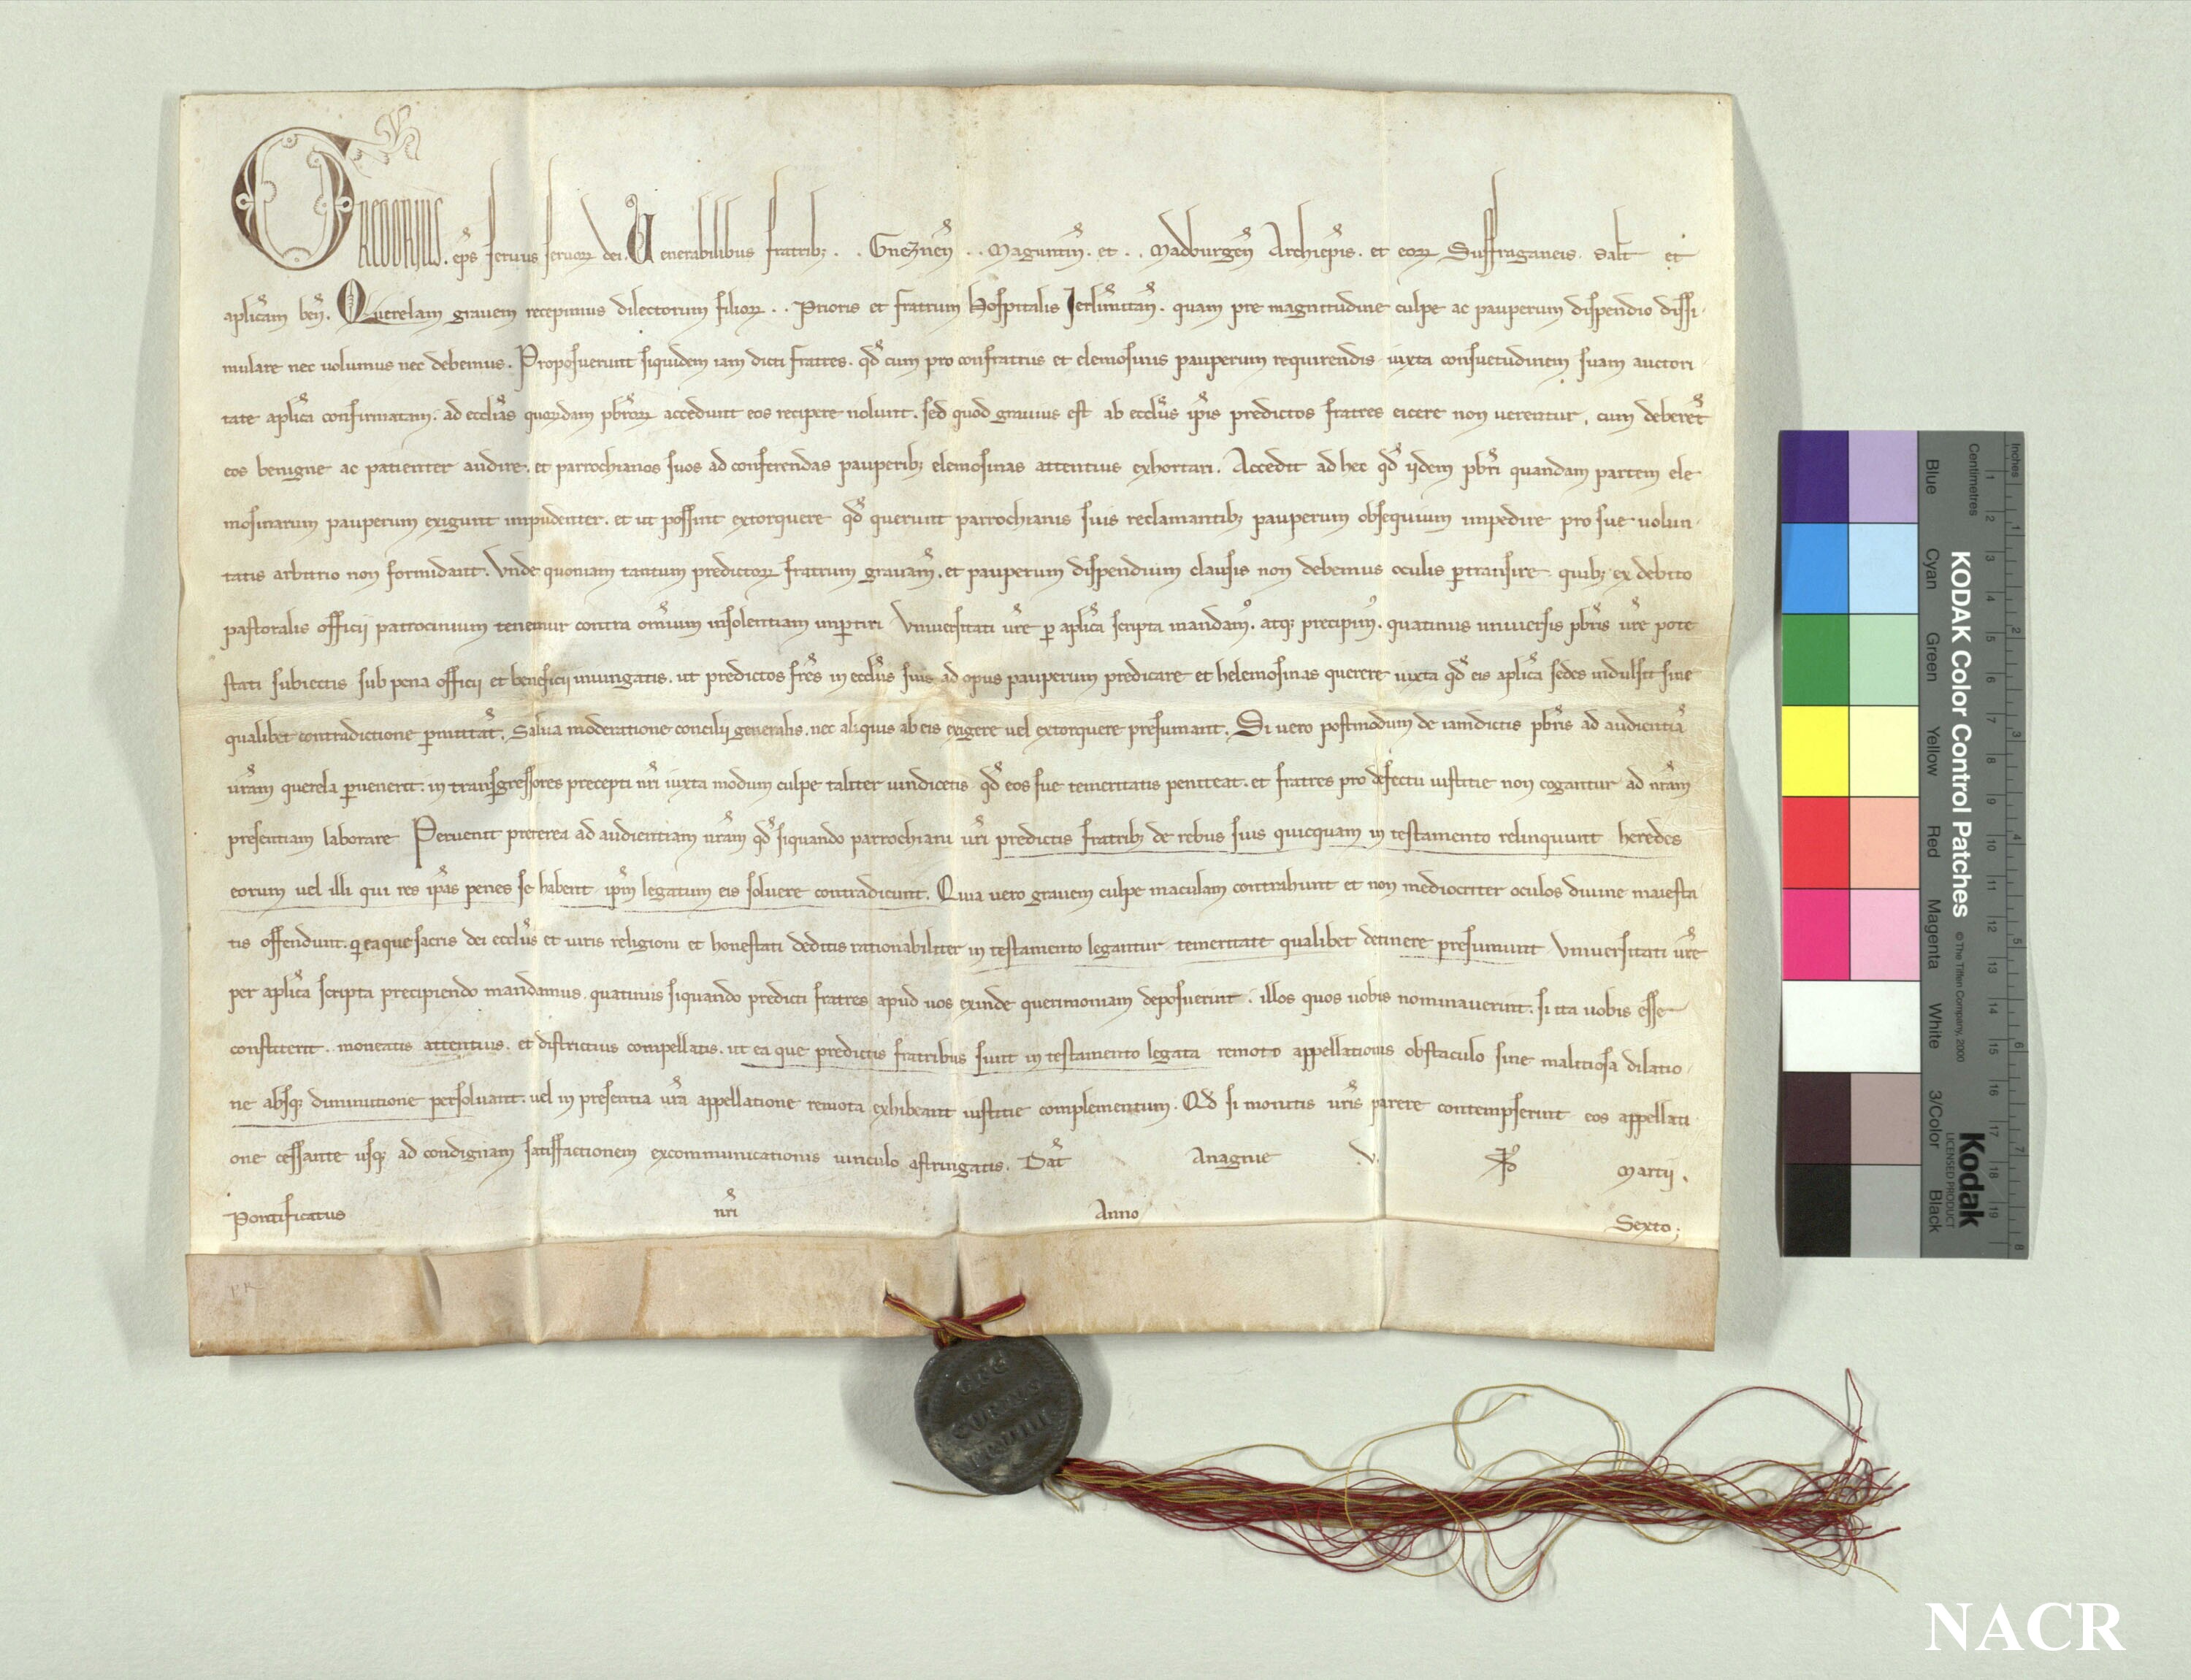 GREGORIUS. ep̄s seruus seruoꝝ dei. Uenerabilibus fratribꝫ . . Gneznen̄ . . Maguntin̄. et . . Madburgen̄ Archiep̄is. et eoꝝ Suffraganeis. Salt̄ et
aplic̄am ben̄. Querelam grauem recepimus dilectorum filioꝝ . . Prioris et fratrum Hospitalis Jerlimitan̄. quam pre magnitudine culpe ac pauperum dispendio dissi-
mulare nec uolumus nec debemus. Proposuerunt siquidem iam dicti fratres. qd̄ cum pro confratriis et elemosinis pauperum requirendis iuxta consuetudinem suam auctori-
tate aplīca confirmatam. ad ecclīas quoꝝdam pbr̄oꝝ accedunt eos recipere nolunt. sed quod grauius est ab ecclīis ip̄is predictos fratres eicere non uerentur, cum deberet̄
eos benigne ac patienter audire. et parrochianos suos ad conferendas pauperibꝫ elemosinas attentius exhortari. Accedit ad hec qd̄ ijdem pbr̄i quandam partem ele
mosinarum pauperum exigunt impudenter. et ut possint extorquere qd̄ querunt parrochianis suis reclamantibꝫ pauperum obsequium impedire pro sue uolun-
tatis arbitrio non formidant. Unde quoniam tantum predictoꝝ fratrum grauam̄. et pauperum dispendium clausis non debemus oculis ꝑtransire. quibꝫ ex debito
pastoralis officij patrocinium tenemur contra om̄ium insolentiam imꝑtiri Uniuersitati ur̄e ꝑ aplīca scripta mandam᾽. atqꝫ precipim᾽. quatinus uniuersis pbr̄is ur̄e pote
stati subiectis sub pena officij et beneficij iniungatis. ut predictos fr̄es in ecclīis suis ad opus pauperum predicare et helemosinas querere iuxta qd̄ eis aplīca sedes indulsit sine
qualibet contradictione ꝑmittat̄. Salua moderatione concilij generalis. nec aliquis ab eis exigere uel extorquere presumant. Si uero postmodum de iamdictis pbr̄is ad audientiā
ur̄am querela ꝑuenerit. in transgressores precepti nr̄i iuxta modum culpe taliter uindicetis qd̄ eos sue temeritatis peniteat. et fratres pro defectu iustitie non cogantur ad nr̄am
presentiam laborare Peruenit preterea ad audientiam nr̄am qd̄ siquando parrochiani ur̄i predictis fratribꝫ de rebus suis quicquam in testamento relinquunt heredes
eorum uel illi qui res ip̄as penes se habent ip̄m legatum eis soluere contradicunt. Quia uero grauem culpe maculam contrahunt et non mediocriter oculos diuine maiesta
tis offendunt. q̄ ea que sacris dei ecclīis et uiris religioni et honestati deditis rationabiliter in testamento legantur temeritate qualibet detinere presumunt Uniuersitati ur̄e
per aplīca scripta precipiendo mandamus. quatinus siquando predicti fratres apud uos exinde querimoniam deposuerint. illos quos uobis nominauerint. si ita uobis esse
constiterit. moneatis attentius. et districtius compellatis. ut ea que predictis fratribus sunt in testamento legata remoto appellationis obstaculo sine malitiosa dilatio-
ne absqꝫ diminutione persoluant. uel in presentia ur̄a appellatione remota exhibeant iustitie complementum. Qd̄ si monitis ur̄is parere contempserint eos appellati-
one cessante usqꝫ ad condignam satisfactionem excommunicationis uinculo astringatis. Dat̄ Anagnie V. Martij.
Pontificatus nr̄i Anno Sexto;
Inches
Centimetres
KODAK Color Control Patches © The Tiffen Company, 2000
Kodak
LICENSED PRODUCT
Blue Cyan Green Yellow Red Magenta White 3/Color Black
NACR